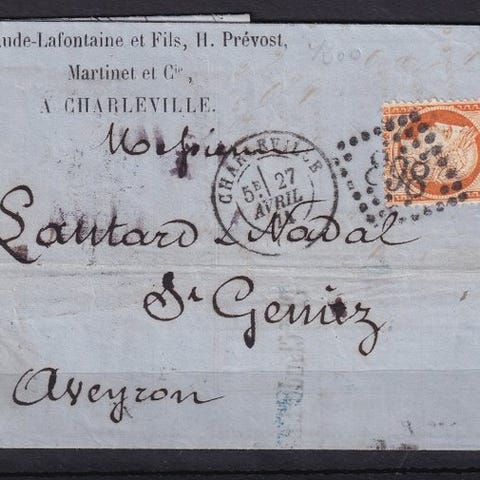 ude-Lafontaine et Fils, H. Prévost,
Martinet et Cie,
A CHARLEVILLE.
Messieurs
CHARLEVILLE
5E 27
AVRIL
Lautard & Nadal
St Geniez
Aveyron